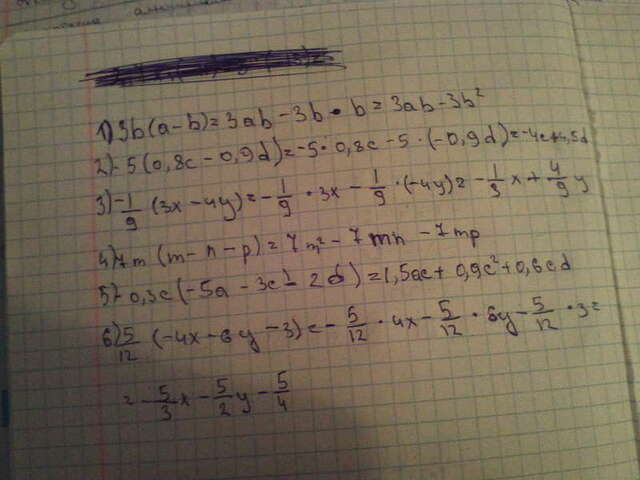 1) 3b(a-b)=3ab-3b·b=3ab-3b²
2)-5(0,8c-0,9d)=-5·0,8c-5·(-0,9d)=-4c+4,5d
3)-1/9(3x-4y)=-1/9·3x-1/9·(-4y)=-1/3x+4/9y
4)7m(m-n-p)=7m²-7mn-7mp
5)-0,3c(-5a-3c-2d)=1,5ac+0,9c²+0,6cd
6)5/12(-4x-6y-3)=-5/12·4x-5/12·6y-5/12·3=
=-5/3x-5/2y-5/4